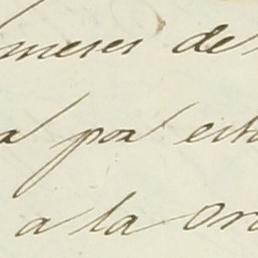 meses de
a por esta
a la Or